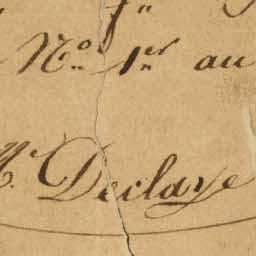 No. 1er au
Mr. Declaye